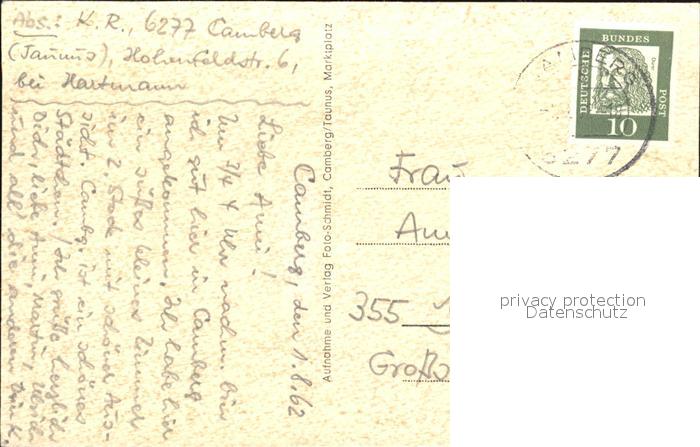 Abs.: K. R., 6277 Camberg
(Taunus), Hohenfeldstr. 6,
bei Hartmann
Camberg, den 1.8.62
Liebe Anni!
Um 3/4 4 Uhr nachm. bin
ich gut hier in Camberg
angekommen. Ich habe hier
ein süßes kleines Zimmer
im 2. Stock mit schöner Aus-
sicht. Cambg. ist ein schönes
Städtchen. Ich grüße herzlich
Dich, liebe Anni, Martin, Ulrich
und all' die anderen
Aufnahme und Verlag Foto-Schmidt, Camberg/Taunus, Marktplatz
DEUTSCHE
BUNDES
POST
Dürer
10
CAMBERG
6277
Frau
355
privacy protection
Datenschutz